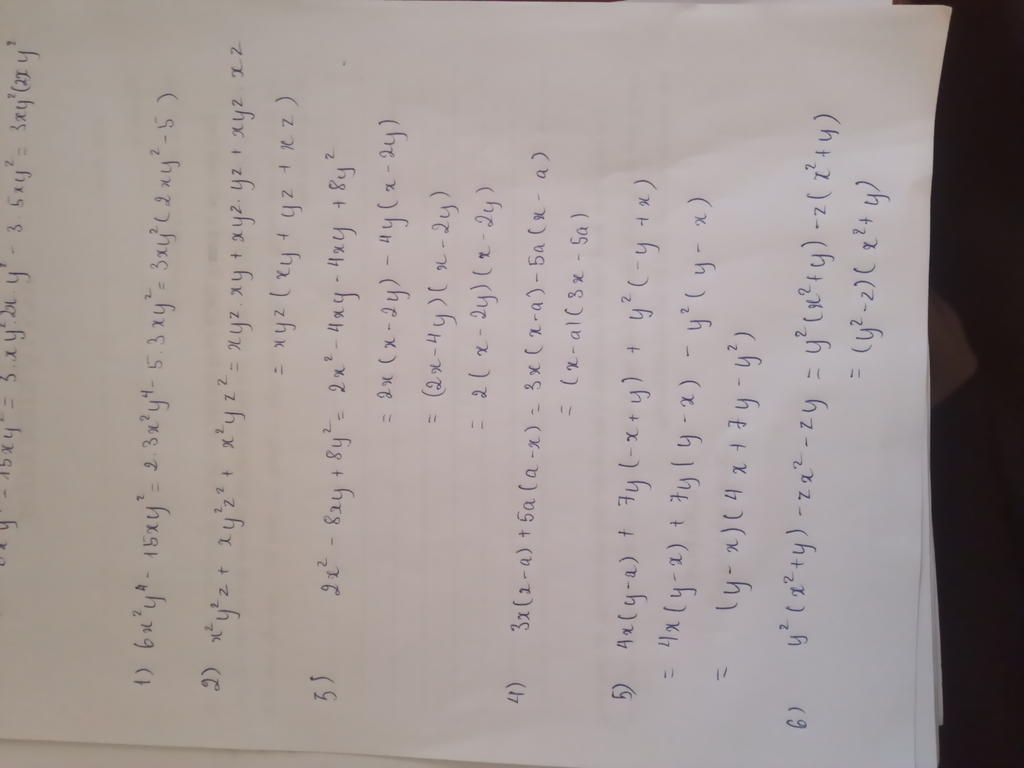 - 15xy² = 3.xy²2x y² - 3.5xy² = 3xy²(2xy²
1) 6x²y⁴ - 15xy² = 2.3x²y⁴ - 5.3xy² = 3xy²(2xy² - 5)
2) x²y²z + xy²z² + x²yz² = xyz.xy + xyz.yz + xyz.xz
= xyz(xy + yz + xz)
3) 2x² - 8xy + 8y² = 2x² - 4xy - 4xy + 8y²
= 2x(x - 2y) - 4y(x - 2y)
= (2x - 4y)(x - 2y)
= 2(x - 2y)(x - 2y)
4) 3x(x-a) + 5a(a-x) = 3x(x-a) - 5a(x-a)
= (x-a)(3x - 5a)
5) 4x(y-a) + 7y(-x+y) + y²(-y+x)
= 4x(y-x) + 7y(y-x) - y²(y-x)
= (y-x)(4x + 7y - y²)
6) y²(x²+y) - zx² - zy = y²(x²+y) - z(x²+y)
= (y²-z)(x²+y)